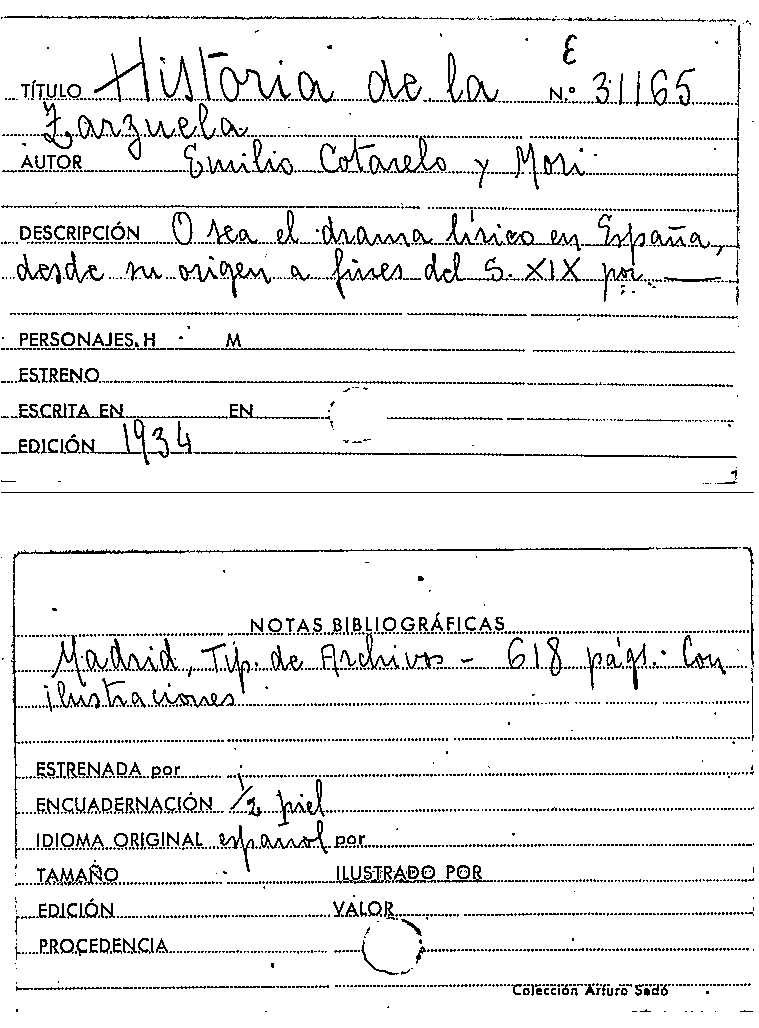 E
TÍTULO Historia de la N.º 31165
Zarzuela
AUTOR Emilio Cotarelo y Mori
DESCRIPCIÓN O sea el drama lírico en España,
desde su origen a fines del S. XIX por ——
PERSONAJES. H M
ESTRENO
ESCRITA EN EN
EDICIÓN 1934
NOTAS BIBLIOGRÁFICAS
Madrid, Tip. de Archivos - 618 págs. Con
ilustraciones
ESTRENADA por
ENCUADERNACIÓN 1/2 piel
IDIOMA ORIGINAL español por
TAMAÑO ILUSTRADO POR
EDICIÓN VALOR
PROCEDENCIA
Colección Arturo Sedó